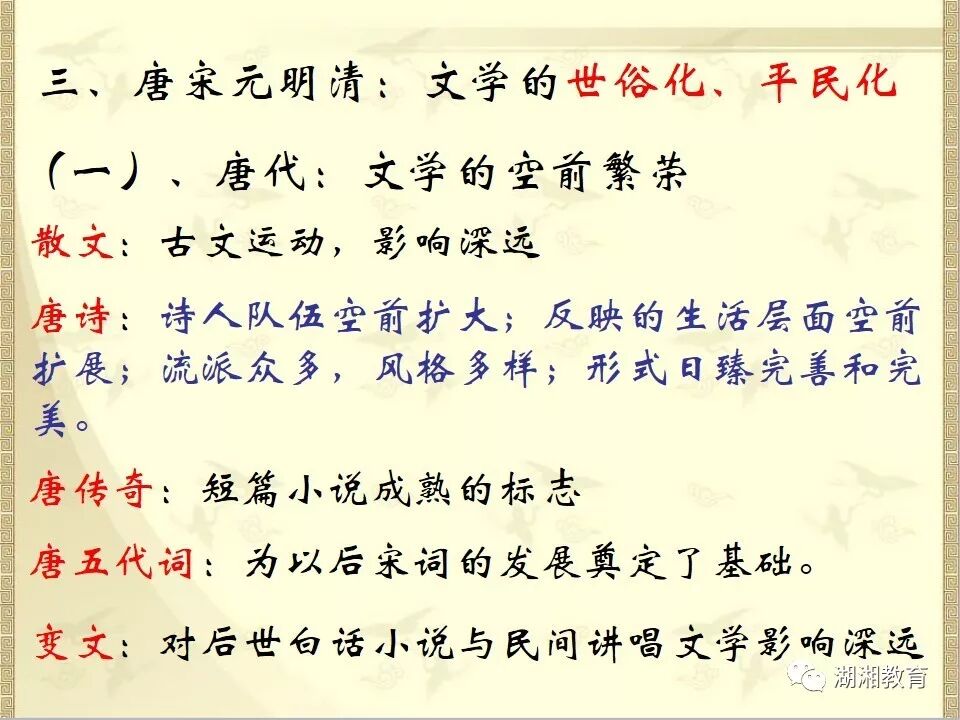 三、唐宋元明清：文学的世俗化、平民化
（一）、唐代：文学的空前繁荣
散文：古文运动，影响深远
唐诗：诗人队伍空前扩大；反映的生活层面空前
扩展；流派众多，风格多样；形式日臻完善和完
美。
唐传奇：短篇小说成熟的标志
唐五代词：为以后宋词的发展奠定了基础。
变文：对后世白话小说与民间讲唱文学影响深远
湖湘教育